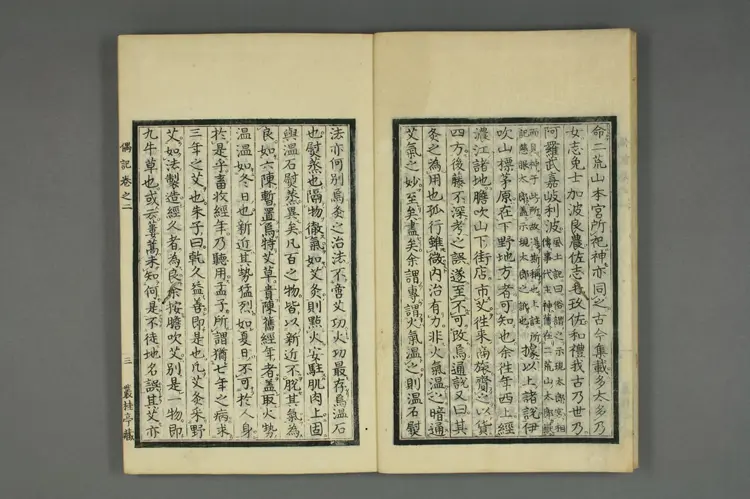 命二荒山本宮所祀神亦同之古今集載多太多乃
女志免士加波良農佐志毛玖佐和禮我古乃世乃
阿羅武嘉岐利波
據以上諸說伊
吹山標茅原在下野地方者可知也余往年西上經
濃江諸地膽吹山下街店市艾往来商旅齎之以貨
四方後藤不深考之誤遂至不可改焉通說又曰其
灸之為用也孤行雖微内治有力非火氣温之暗通
艾氣之妙至矣盡矣余謂專謂火氣温之則温石熨
法亦何別焉灸之治法不啻艾功火功最存焉温石
也熨蒸也隔物徹氣如艾灸則點火安駐肌肉上固
與温石熨蒸異矣凡百之物皆以新近不脫其氣為
良如六陳暫置焉特艾草貴陳舊經年者蓋取火勢
温温如冬日也新近其勢猛烈如夏日不可於人身
於是乎畜收經年乃聽用孟子所謂猶七年之病求
三年之艾也朱子曰乾久益善即是也凡艾灸采野
艾如法製造經久者為良余按膽吹艾別是一物即
九牛草也或云蔞蒿未知何是不徒地名誤其艾亦
偶記卷之二
三
叢桂亭藏